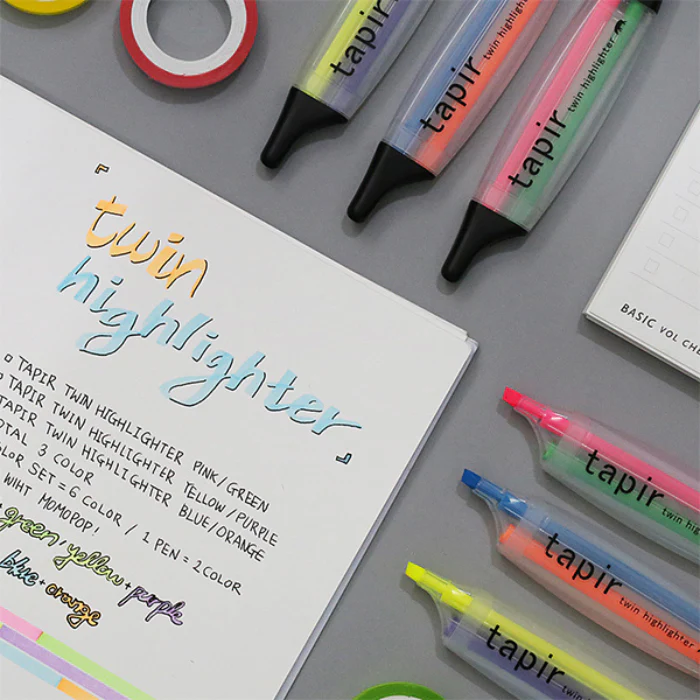 tapir
tapir
twin highlighter
tapir
twin highlighter
twin
highlighter
TAPIR TWIN HIGHLIGHTER PINK/GREEN
TAPIR TWIN HIGHLIGHTER YELLOW/PURPLE
TAPIR TWIN HIGHLIGHTER BLUE/ORANGE
TOTAL 3 COLOR
COLOR SET = 6 COLOR / 1 PEN = 2 COLOR
WIHT MOMOPOP!
green, yellow + purple
blue + orange
BASIC VOL CHE
tapir
twin hig
tapir
twin highlighter
tapir
twin